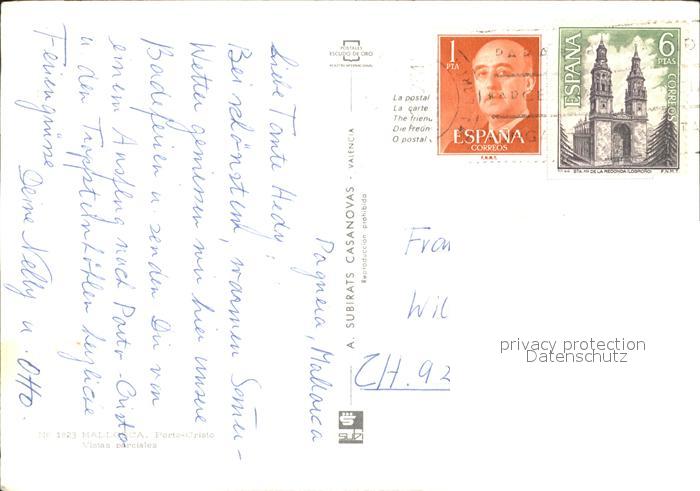 Paguera, Mallorca
Liebe Tante Hedy!
Bei schönstem, warmen Sonn-
Wetter geniessen wir hier unsere
Badeferien u. senden Dir von
einem Ausflug nach Porto-Cristo
u. den Tropfsteinhöhlen herzliche
Feriengrüsse
Deine Nelly u. Otto.
Nº 1823 MALLORCA. Porto-Cristo
Vistas parciales
POSTALES
ESCUDO DE ORO
A. SUBIRATS CASANOVAS - VALENCIA
Reproducción prohibida
SUBI
La postal
La carte
The frien
Die Freun
O postal
1
PTA
ESPAÑA
CORREOS
F.N.M.T.
ESPAÑA
6
PTAS
CORREOS
STA. Mª DE LA REDONDA (LOGROÑO)
F.N.M.T.
Frau
Wil
CH. 92
privacy protection
Datenschutz